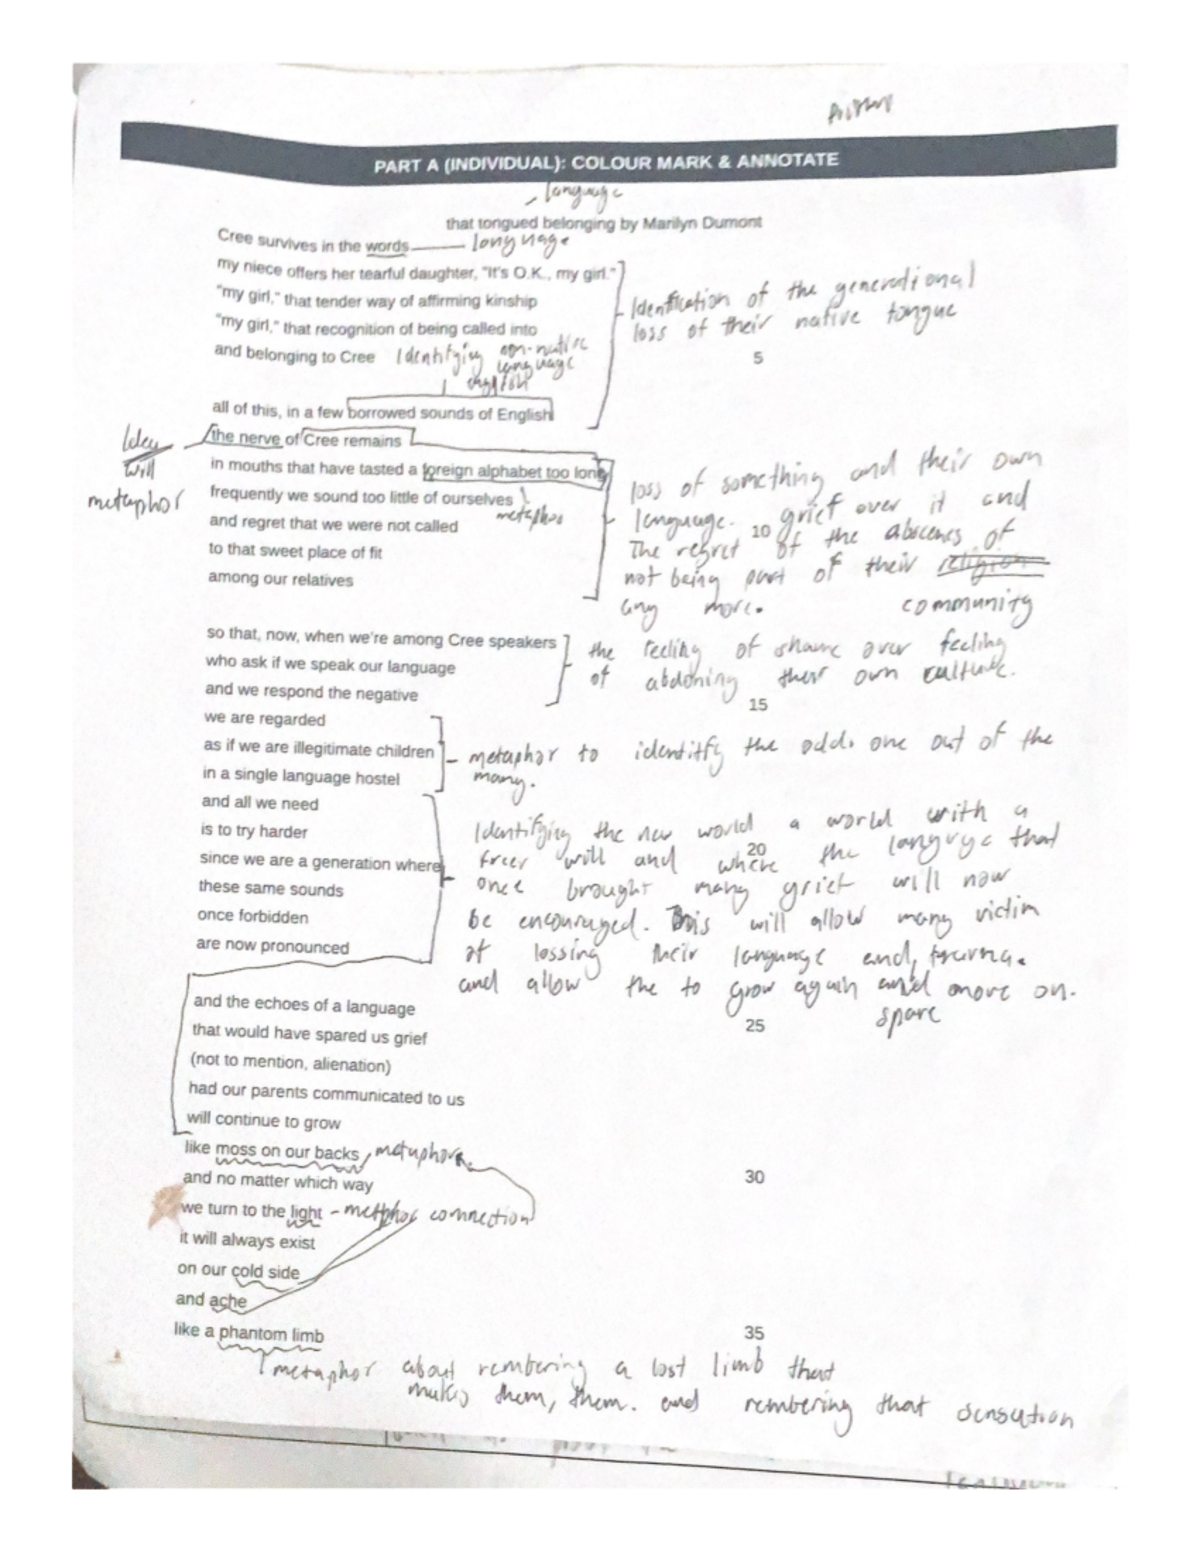 PART A (INDIVIDUAL): COLOUR MARK & ANNOTATE
language
that tongued belonging by Marilyn Dumont
Cree survives in the words language
my niece offers her tearful daughter, "It's O.K., my girl."
"my girl," that tender way of affirming kinship
"my girl," that recognition of being called into
and belonging to Cree
Idenfication of the generational
loss of their native tongue
5
Identifying non-native
language
english
all of this, in a few borrowed sounds of English
the nerve of Cree remains
in mouths that have tasted a foreign alphabet too long
frequently we sound too little of ourselves
and regret that we were not called
to that sweet place of fit
among our relatives
will
metaphor
metaphor
loss of something and their own
language. grief over it and
10
The regret of the abscencs of
not being part of their religion
any more. community
so that, now, when we're among Cree speakers
who ask if we speak our language
and we respond the negative
the feeling of shame over feeling
of abdoning their own culture.
15
we are regarded
as if we are illegitimate children
in a single language hostel
metaphor to identitfy the odd one out of the
many.
and all we need
is to try harder
since we are a generation where
these same sounds
once forbidden
are now pronounced
Identifying the new world a world with a
20
freer will and where the language that
once brought many grief will now
be encouraged. This will allow many victim
of lossing their language and
and allow the to grow again and move on.
spare
and the echoes of a language
that would have spared us grief
25
(not to mention, alienation)
had our parents communicated to us
will continue to grow
like moss on our backs, metaphor
and no matter which way
30
we turn to the light - metphor connection
it will always exist
on our cold side
and ache
like a phantom limb
35
metaphor about rembering a lost limb that
makes them, them. and rembering that sensation